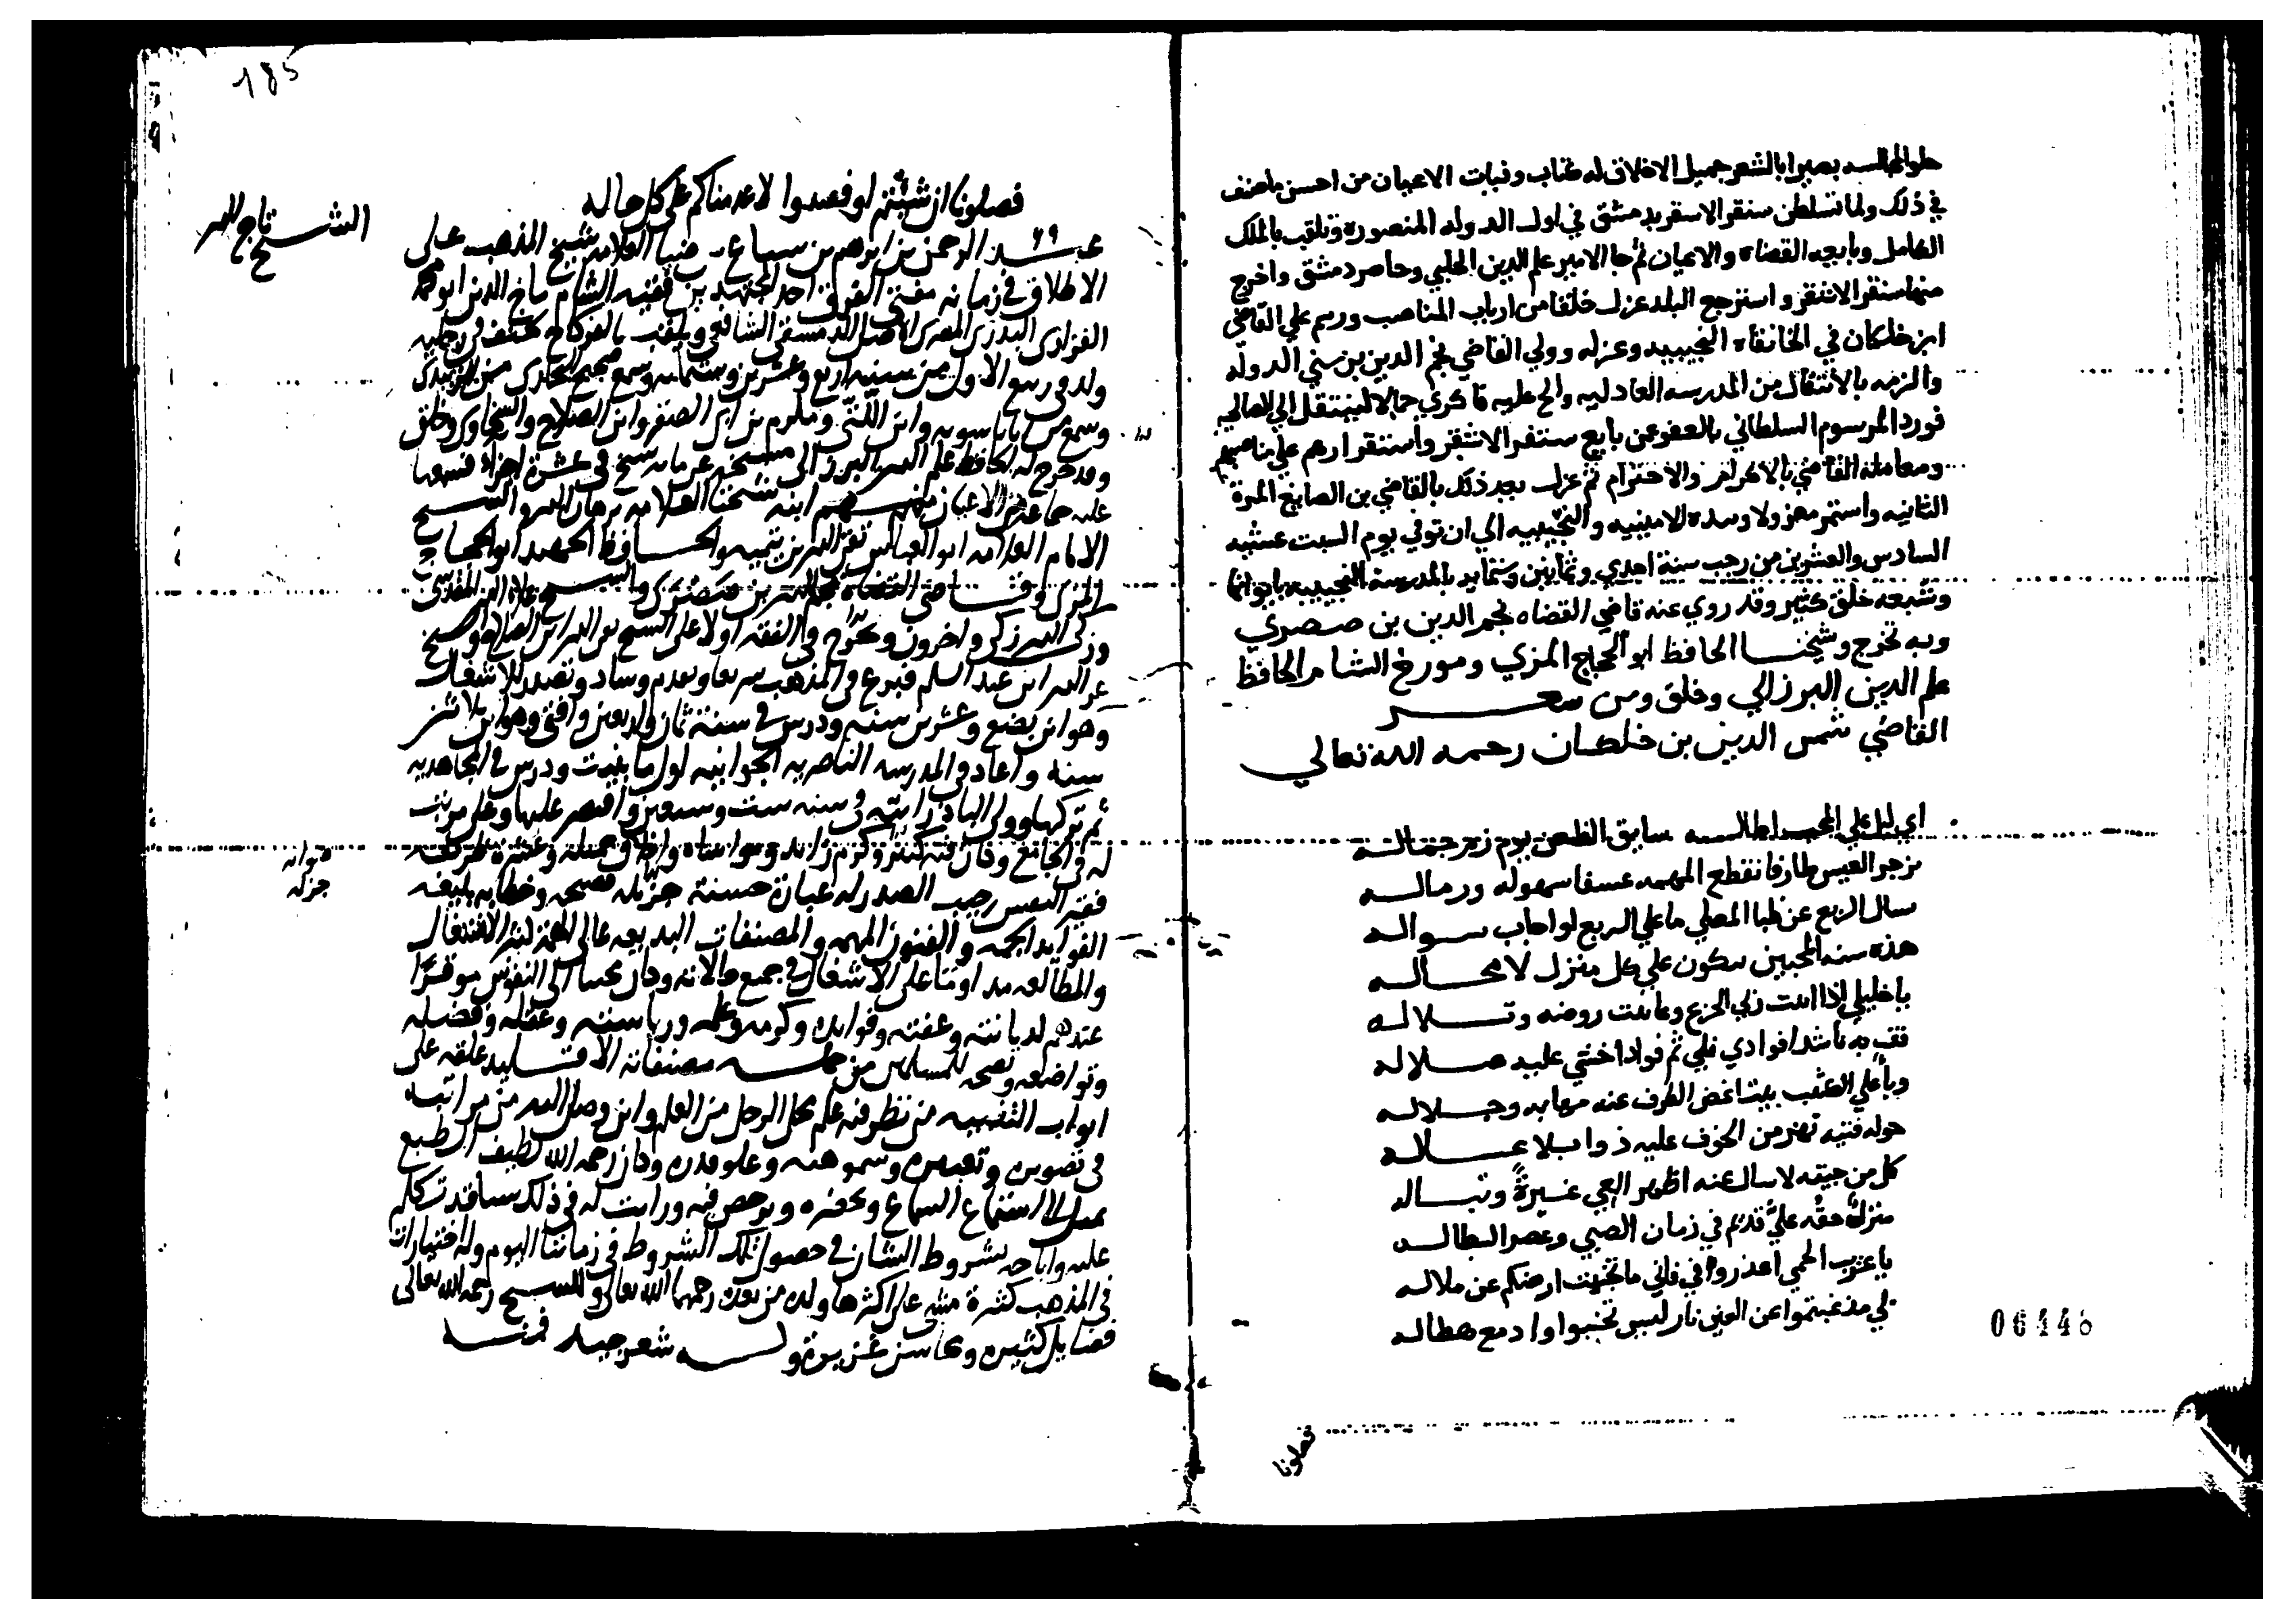 حلو المجالسه بصيرا بالشعر جميل الاخلاق له كتاب وفيات الاعيان من احسن ما صنف
في ذلك ولما تسلطن سنقر الاسقر بدمشق في اول الدوله المنصوره وتلقب بالملك
الكامل وبايعه القضاه والاعيان ثم جا الامير علم الدين الحلبي وحاصر دمشق واخرج
منها سنقر الاشقر واسترجع البلد عزل خلقا من ارباب المناصب ورسم علي القاضي
ابن خلكان في الخانقاه النجيبيه وعزله وولي القاضي نجم الدين بن سني الدوله
والزمه بالانتقال من المدرسه العادليه والح عليه فاكري جمالا لينتقل الي الصالحيه
فورد المرسوم السلطاني بالعفو عن بايع سنقر الاشقر واستقرارهم علي مناصبهم
ومعامله القاضي بالاكرام والاحترام ثم عزل بعد ذلك بالقاضي بن الصايغ المرة
الثانيه واستمر معزولا وبيده الامينيه والنجيبيه الي ان توفي يوم السبت عشيه
السادس والعشرين من رجب سنة احدي وثمانين وستمايه بالمدرسة النجيبيه بايوانها
وشيعه خلق كثير وقد روي عنه قاضي القضاه نجم الدين بن صصري
وبه تخرج وشيخنا الحافظ ابو الحجاج المزي ومورخ الشام الحافظ
علم الدين البرزالي وخلق ومن شعر
القاضي شمس الدين بن خلكان رحمه الله تعالي
اي ليل علي المحب اطاله سايق الظعن يوم زم جماله
يزجر العيس طارفا نقطع المهمه عسفا سهوله ورماله
سال الربع عن ظبا المصلي ما علي الربع لو اجاب سواله
هذه سنه المحبين يبكون علي كل منزل لا محاله
يا خليلي اذا اتيت ربي الجزع وعاينت روضه وتلاله
قف به ناشدا فوادي فلي ثم فوادا اخشي عليه ضلاله
وباعلي الكثيب بيت اغض الطرف عنه مهابه وجلاله
حوله فتيه تهز من الخوف عليه ذوابلا عساله
كل من جيته لاسال عنه اظهر العي غيرة وتباله
منزل حقه علي قديم في زمان الصبي وعصر البطاله
يا عريب الحمي اعذروني فاني ما تجنبت ارضكم عن ملاله
لي مذ غبتموا عن العين نار ليس تخبوا وادمع هطاله
فصلونا
06446
185
فصلونا ان شئتم او فصدوا لا عدمناكم علي كل حاله
الشيخ تاج الدين
عبد الرحمن بن ابرهيم بن سباع بن ضيا العلامه شيخ المذهب علي
الاطلاق في زمانه مفتي الفرق احد المجتهدين فقيه الشام تاج الدين ابو محمد
الفزاري البدري المصري الاصل الدمشقي الشافعي ويلقب بالفركاح
ولد في ربيع الاول من سنه اربع وعشرين وستمايه وسمع صحيح البخاري من ابن الزبيدي
وسمع من ابن باسويه وابن اللتي ومكرم بن ابي الصقر وابن الصلاح والسخاوي وخلق
وقد خرج له الحافظ علم الدين البرزالي مشيخه عن مايه شيخ في عشرة اجزاء فسمعها
عليه جماعه من الاعيان منهم ابنه شيخنا العلامه برهان الدين والشيخ
الامام العلامه ابو العباس تقي الدين بن تيميه والحافظ الجهبذ ابو الحجاج
المزي وقاضي القضاه نجم الدين بن صصري والشيخ علاء الدين المقدسي
وزكي الدين زكري واخرون وتخرج في الفقه اولا علي الشيخ تقي الدين ابن الصلاح والشيخ
عز الدين ابن عبد السلم فبرع في المذهب سريعا وتقدم وساد وتصدر للاشغال
وهو ابن بضع وعشرين سنه ودرس في سنة ثمان واربعين وافتي وهو ابن ثلاثين
سنه واعاد في المدرسه الناصريه الجوانيه اول ما بنيت ودرس في المجاهديه
ثم تركها وولي الباذرائيه في سنه ست وسبعين واقتصر عليها وعلي مرتب
له في الجامع وكان فيه كيس وكرم زايد ومواساه واخلاق جميله وعشره
فقيه النفس رحيب الصدر له عبارة حسنة جزله فصيحه وخطابه بليغه
صوابه
جزله
الفوايد الجمه والفنون المهمه والمصنفات البديعه عالي الهمه كثير الاشتغال
والمطالعه مداوما علي الاشغال في جميع حالاته وكان محببا الي النفوس موقرا
عندهم لديانته وعفته وفوايده وكرمه وعلمه ورياسته وعقله وفضله
وتواضعه ونصحه للمسلمين من جملة مصنفاته الاقليد علقه علي
ابواب التنبيه من نظر فيه علم محل الرجل من العلم واين وصل اليه من مراتبه
في تصويره وتعبيره وسمو همته وعلو قدره وكان رحمه الله لطيف الطبع
يميل الي استماع السماع ويحضره ويرخص فيه ورايت له في ذلك شيا قد تكلم
عليه واباحه بشروط الشان في حصول تلك الشروط في زماننا اليوم وله اختيارات
في المذهب كثيرة مشي علي اكثرها ولده من بعده رحمهما الله تعالي وللشيخ رحمه الله تعالي
فضايل كثيره ومحاسن غزيره وله شعر جيد فمنه